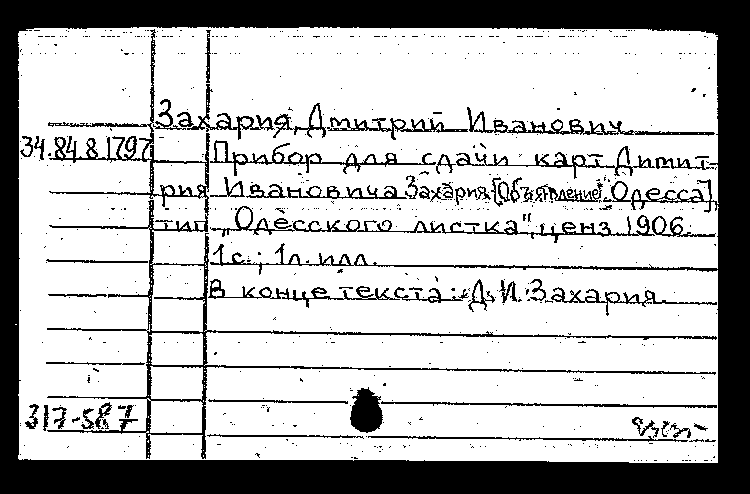 Захария, Дмитрий Иванович
34.84.8.1797
Прибор для сдачи карт Димит-
рия Ивановича Захария. [Объявление]. Одесса],
тип. „Одесского листка", ценз. 1906.
1 с.; 1 л. илл.
В конце текста: Д. И. Захария.
317-587